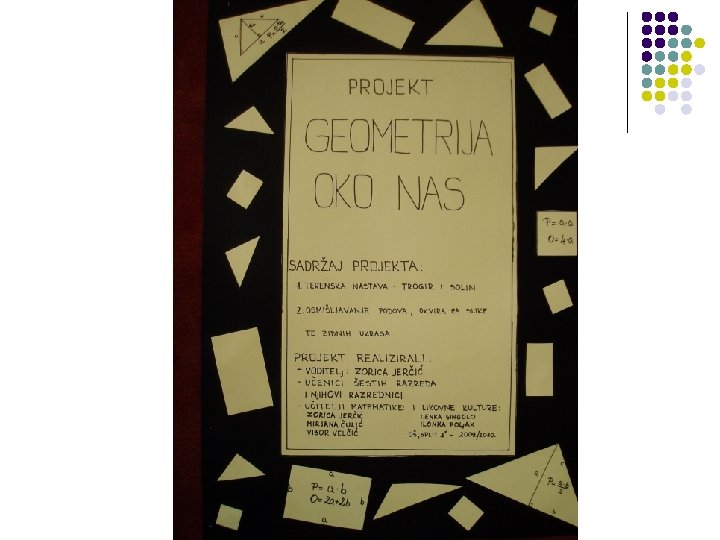 PROJEKT
GEOMETRIJA
OKO NAS
SADRŽAJ PROJEKTA:
1. TERENSKA NASTAVA - TROGIR I SOLIN
2. OSMIŠLJAVANJE PODOVA, OKVIRA ZA SLIKE
TE ZIDNIH UKRASA
PROJEKT REALIZIRALI:
- VODITELJ: ZORICA JERČIĆ
- UČENICI ŠESTIH RAZREDA
I NJIHOVI RAZREDNICI
- UČITELJI MATEMATIKE: I LIKOVNE KULTURE:
ZORICA JERČIĆ
MIRJANA ČULIĆ
VISOR VELČIĆ
LENKA
ILONKA POLJAK
2009/2010
P = a·a
O = 4·a
a
b
P = a·b
O = 2a+2b
b
a